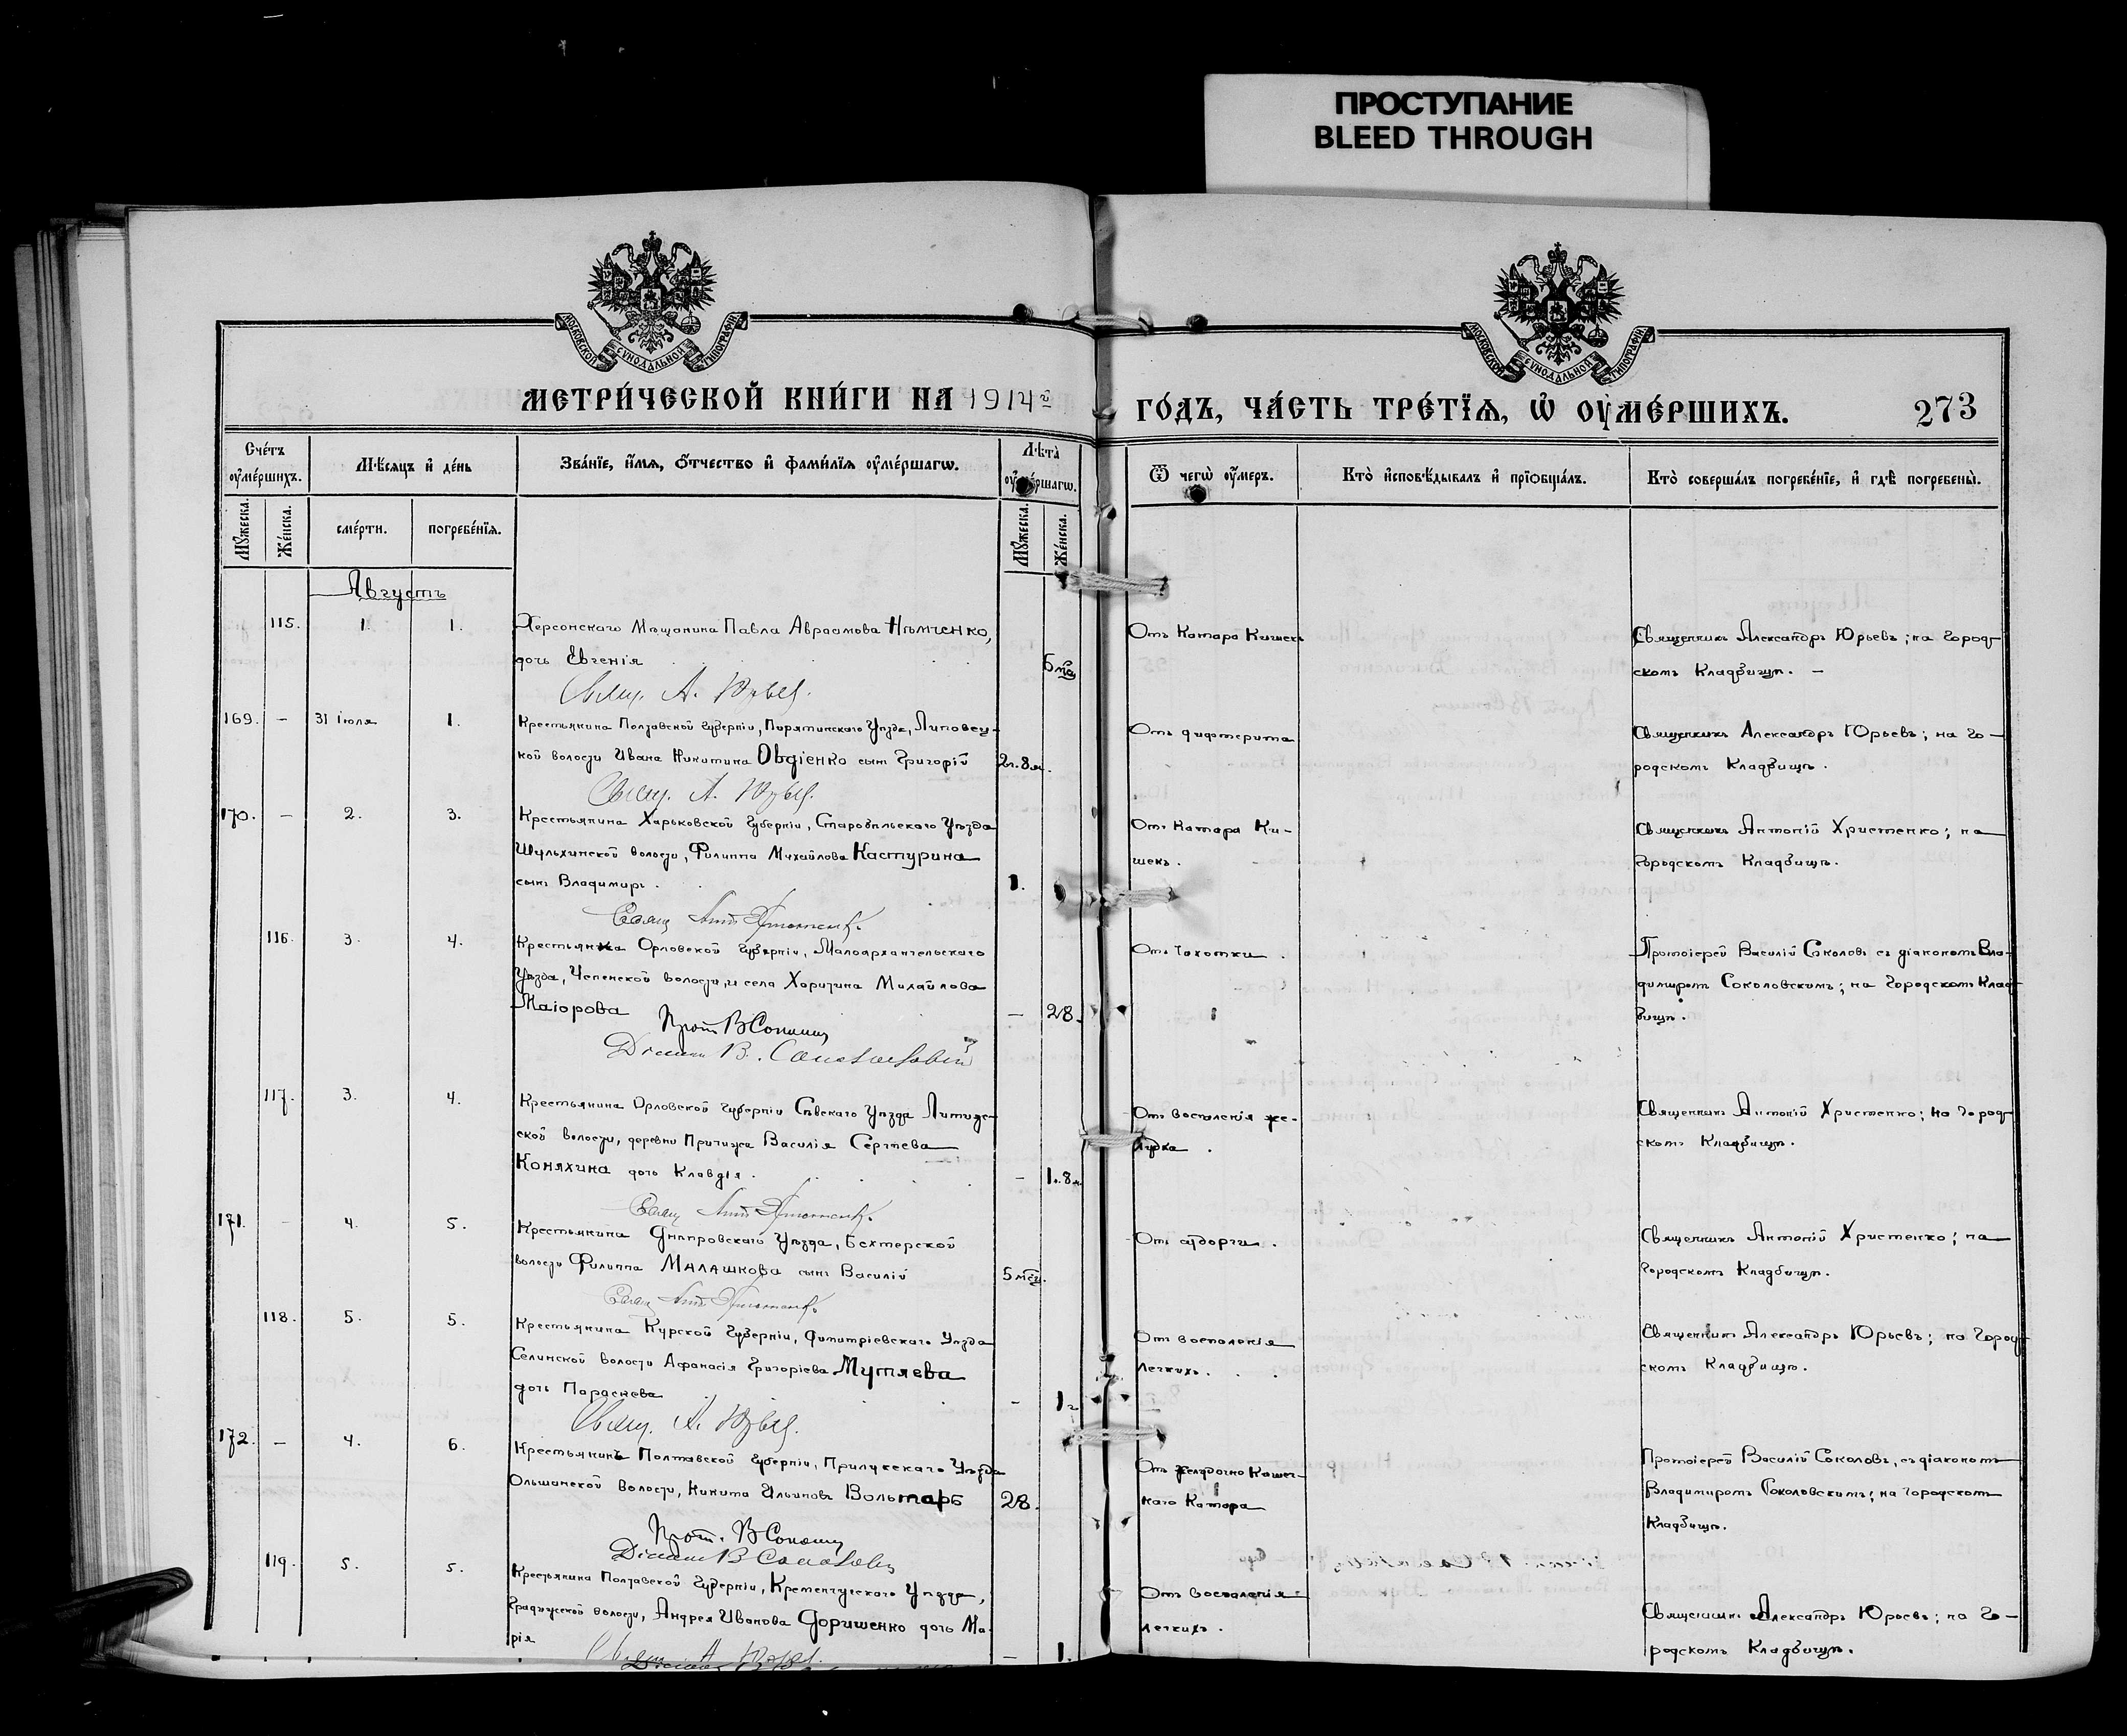 ПРОСТУПАНИЕ
BLEED THROUGH
МОСКОВСКОЙ СѴНОДАЛЬНОЙ ТИПОГРАФІИ
МОСКОВСКОЙ СѴНОДАЛЬНОЙ ТИПОГРАФІИ
МЕТРИ́ЧЕСКОЙ КНИ́ГИ НА 1914 й
ГО́ДЪ, ЧА́СТЬ ТРЕ́ТЇѦ, Ѡ҆ ОУ҆МЕ́РШИХЪ.
273
Сче́тъ оу҆ме́ршихъ.
Мѣ́сяцъ и҆ де́нь
Зва́нїе, и҆́мѧ, о҆́тчество и҆ фами́лїѧ оу҆ме́ршагѡ.
Лѣ́та оу҆ме́ршагѡ.
Ѿ чегѡ̀ оу҆́меръ.
Кто̀ и҆сповѣ́дывалъ и҆ прїѻбща́лъ.
Кто̀ соверша́лъ погребе́нїе, и҆ гдѣ̀ погребены̀.
Мꙋ́жеска.
Же́нска.
сме́рти.
погребе́нїѧ.
Мꙋ́жеска.
Же́нска.
Августъ
115. 1. 1. Херсонскаго Мѣщанина Павла Авраамова Нѣмченко,
дочь Евгенія
Свящ. А. Юрьев.
Отъ Катара Кишекъ
Священникъ Александръ Юрьевъ; на Город-
скомъ Кладбищѣ. –
169. – 31 іюля 1. Крестьянина Полтавской Губерніи, Пирятинскаго Уѣзда, Липовец-
кой волости Ивана Никитина Овдіенко сынъ Григорій 2г. 8м.
Свящ. А. Юрьев.
Отъ дифтерита
Священникъ Александръ Юрьевъ; на Го-
родскомъ Кладбищѣ.
170. – 2. 3. Крестьянина Харьковской Губерніи, Старобѣльскаго Уѣзда
Шульхинской волости, Филиппа Михайлова Кастурина
сынъ Владимиръ. 1.
Свящ Ант Христенко
Отъ Катара Ки-
шекъ.
Священникъ Антоній Христенко; на
Городскомъ Кладбищѣ.
116. 3. 4. Крестьянка Орловской Губерніи, Малоархангельскаго
Уѣзда, волости, и села Михайлова
Маіорова – 28.
Прот В Соколов
Діакон В. Соколовскій
Отъ Чахотки.
Протоіерей Василій Соколовъ съ діакономъ Вла-
димиромъ Соколовскимъ; на Городскомъ Клад-
бищѣ.
117. 3. 4. Крестьянина Орловской Губерніи Сѣвскаго Уѣзда
ской волости, деревни Василія Сергѣева
Коняхина дочь Клавдія. – 1г. 8м.
Свящ Ант Христенко
Отъ воспаленія же-
лудка.
Священникъ Антоній Христенко; на Город-
скомъ Кладбищѣ.
171. – 4. 5. Крестьянина Днѣпровскаго Уѣзда, Бехтерской
волости Филиппа Малашкова сынъ Василій 5 мѣц.
Свящ Ант Христенко
Отъ судорги.
Священникъ Антоній Христенко; на
Городскомъ Кладбищѣ.
118. 5. 5. Крестьянина Курской Губерніи, Димитріевскаго Уѣзда
Селинской волости Афанасія Григоріева Мутяева
дочь Параскева – 1г
Свящ. А. Юрьев.
Отъ воспаленія
легкихъ.
Священникъ Александръ Юрьевъ; на Город-
скомъ Кладбищѣ.
172. – 4. 6. Крестьянинъ Полтавской Губерніи, Прилукскаго Уѣзда
Ольшанской волости, Никита Ильиновъ Вольтарь 28.
Прот. В Соколов
Діакон В Соколовскій
Отъ желудочно Кишеч-
наго Катара
Протоіерей Василій Соколовъ, съ діакономъ
Владимиромъ Соколовскимъ; на Городскомъ
Кладбищѣ.
119. 5. 5. Крестьянина Полтавской Губерніи, Кременчугскаго Уѣзда,
Градижской волости, Андрея Иванова Доришенко дочь Ма-
рія – 1.
Свящ А Юрьев.
Отъ воспаленія
легкихъ.
Священникъ Александръ Юрьевъ; на Го-
родскомъ Кладбищѣ.